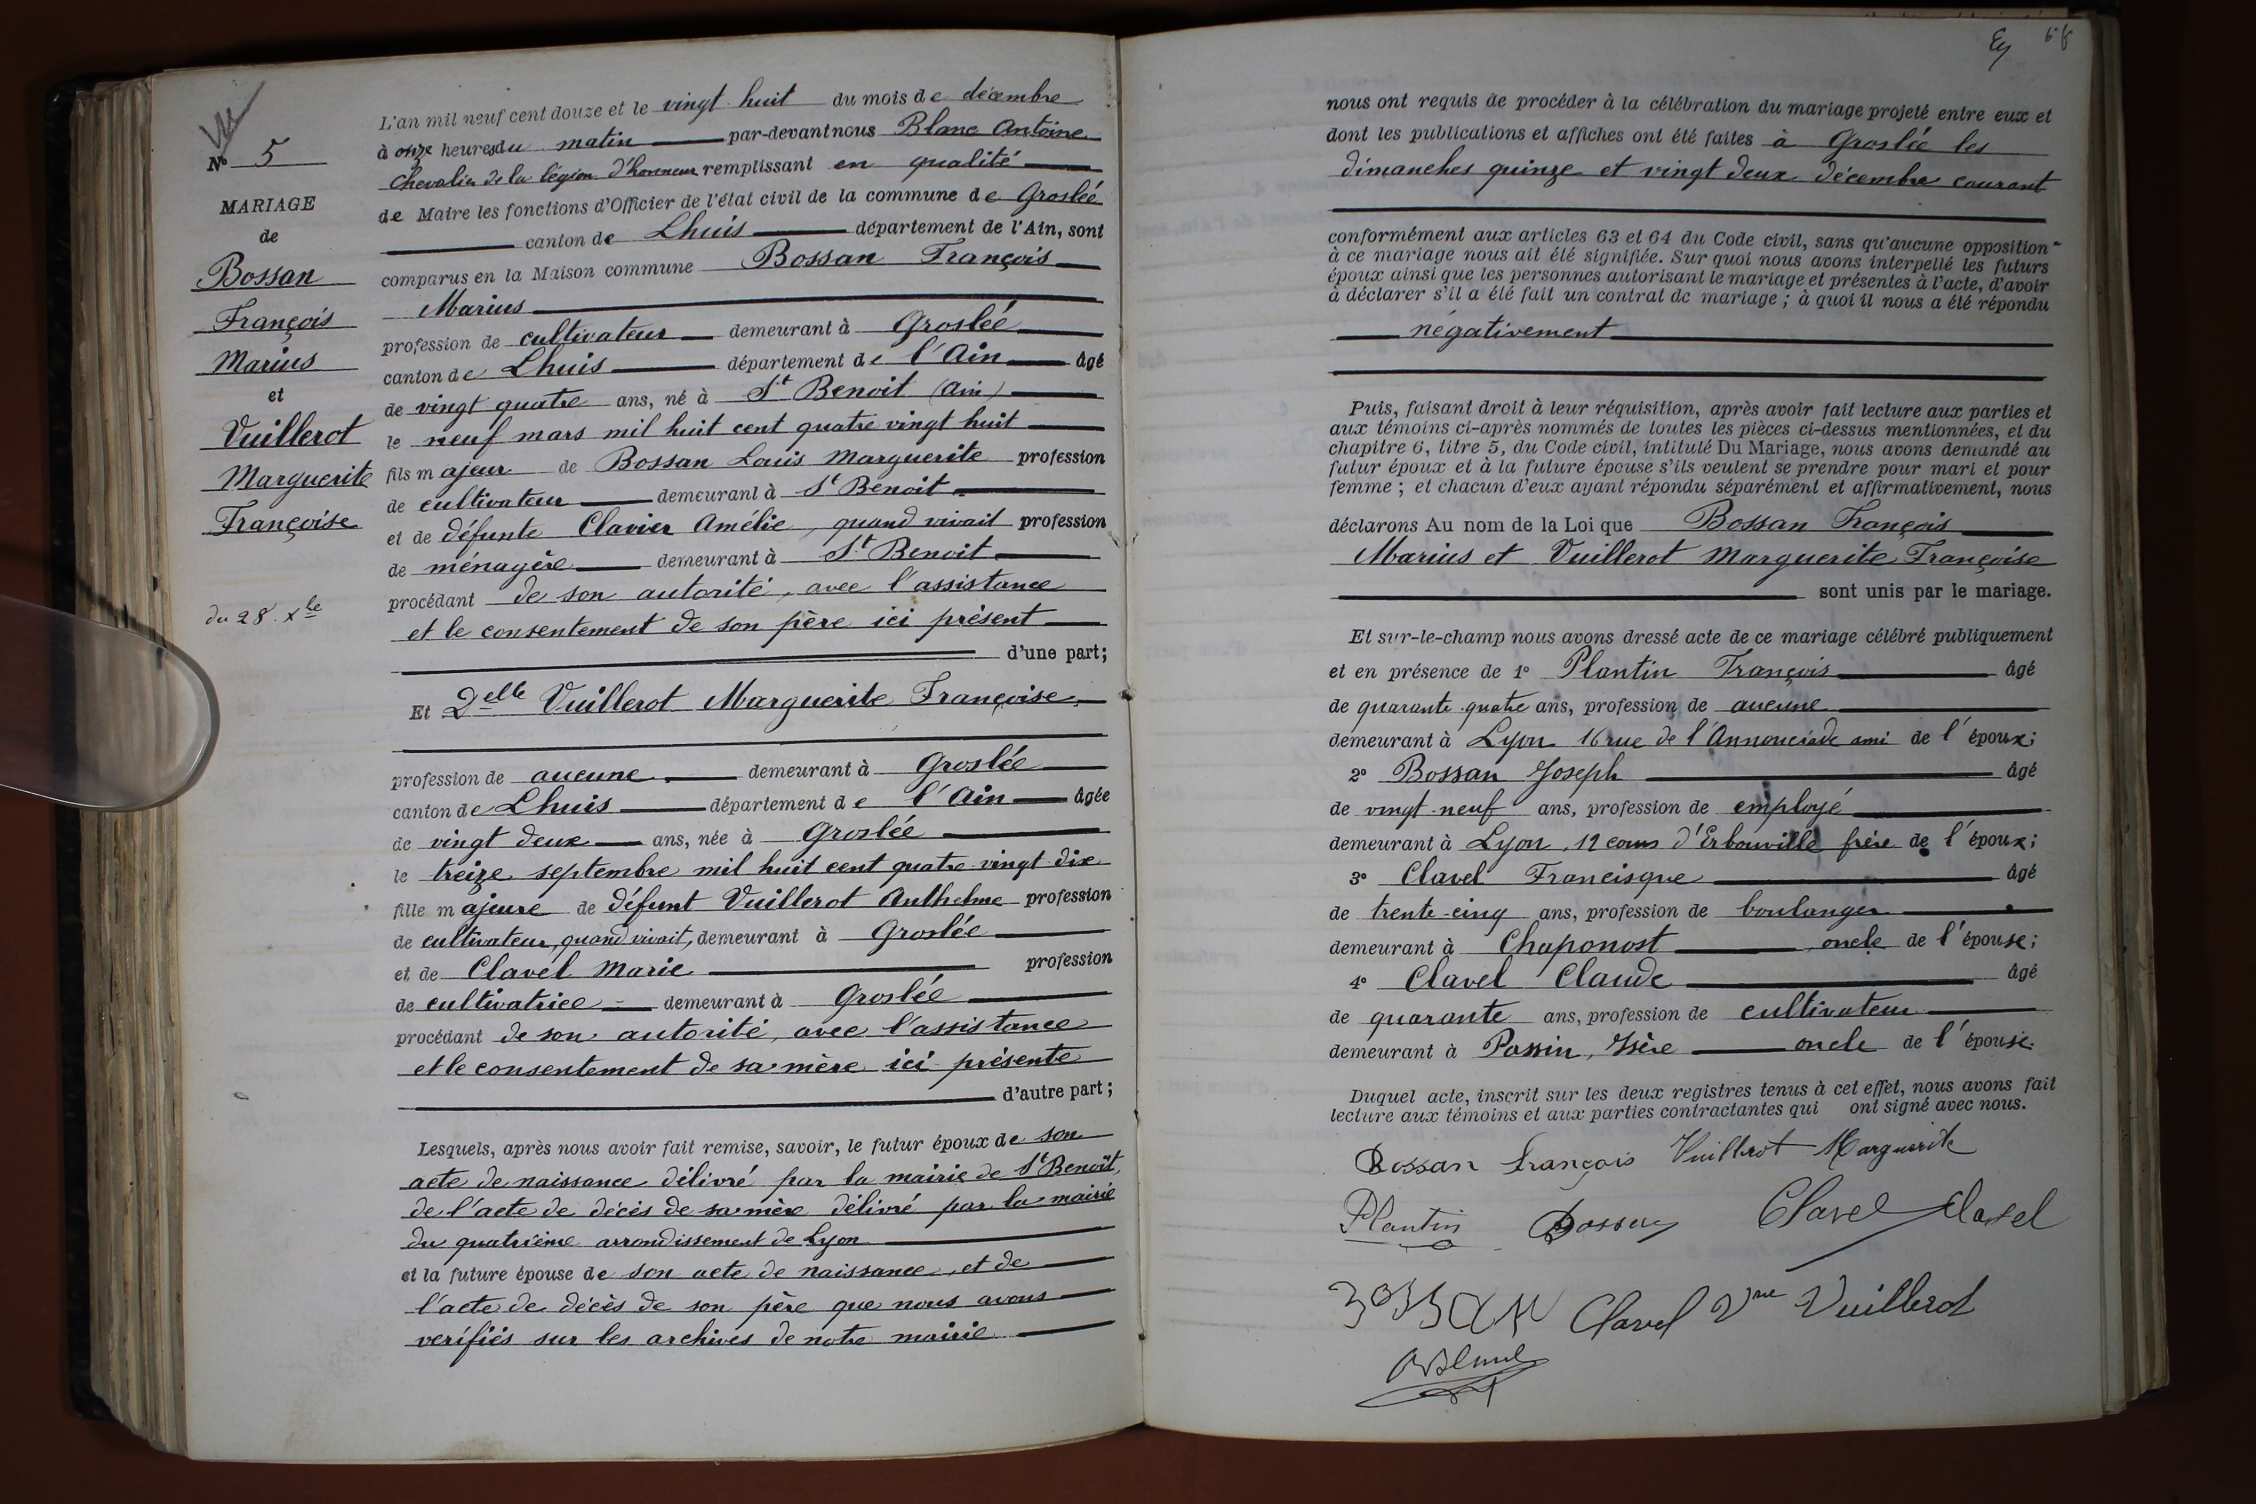 N° 5
MARIAGE
de
Bossan
François
Marius
et
Vuillerot
Marguerite
Françoise
du 28 Xbre
L'an mil neuf cent douze et le vingt huit du mois de décembre
à onze heures du matin par-devant nous Blanc Antoine
Chevalier de la légion d'honneur remplissant en qualité
de Maire les fonctions d'Officier de l'état civil de la commune de Groslée
canton de Lhuis département de l'Ain, sont
comparus en la Maison commune Bossan François
Marius
profession de cultivateur demeurant à Groslée
canton de Lhuis département de l'Ain âgé
de vingt quatre ans, né à St Benoit (Ain)
le neuf mars mil huit cent quatre vingt huit
fils majeur de Bossan Louis Marguerite profession
de cultivateur demeurant à St Benoit
et de défunte Clavier Amélie, quand vivait profession
de ménagère demeurant à St Benoit
procédant de son autorité, avec l'assistance
et le consentement de son père ici présent
d'une part;
Et Delle Vuillerot Marguerite Françoise
profession de aucune demeurant à Groslée
canton de Lhuis département de l'Ain âgée
de vingt deux ans, née à Groslée
le treize septembre mil huit cent quatre-vingt dix
fille majeure de défunt Vuillerot Anthelme profession
de cultivateur, quand vivait, demeurant à Groslée
et de Clavel Marie profession
de cultivatrice demeurant à Groslée
procédant de son autorité, avec l'assistance
et le consentement de sa mère ici présente
d'autre part;
Lesquels, après nous avoir fait remise, savoir, le futur époux de son
acte de naissance délivré par la mairie de St Benoît,
de l'acte de décès de sa mère délivré par la mairie
du quatrième arrondissement de Lyon
et la future épouse de son acte de naissance, et de
l'acte de décès de son père que nous avons
verifiés sur les archives de notre mairie
nous ont requis de procéder à la célébration du mariage projeté entre eux et
dont les publications et affiches ont été faites à Groslée les
dimanches quinze et vingt deux décembre courant
conformément aux articles 63 et 64 du Code civil, sans qu'aucune opposition
à ce mariage nous ait été signifiée. Sur quoi nous avons interpellé les futurs
époux ainsi que les personnes autorisant le mariage et présentes à l'acte, d'avoir
à déclarer s'il a été fait un contrat de mariage; à quoi il nous a été répondu
négativement
Puis, faisant droit à leur réquisition, après avoir fait lecture aux parties et
aux témoins ci-après nommés de toutes les pièces ci-dessus mentionnées, et du
chapitre 6, titre 5, du Code civil, intitulé Du Mariage, nous avons demandé au
futur époux et à la future épouse s'ils veulent se prendre pour mari et pour
femme; et chacun d'eux ayant répondu séparément et affirmativement, nous
déclarons Au nom de la Loi que Bossan François
Marius et Vuillerot Marguerite Françoise
sont unis par le mariage.
Et sur-le-champ nous avons dressé acte de ce mariage célébré publiquement
et en présence de 1° Plantin François âgé
de quarante-quatre ans, profession de aucune
demeurant à Lyon 16 rue de l'Annonciade ami de l'époux;
2° Bossan Joseph âgé
de vingt-neuf ans, profession de employé
demeurant à Lyon, 12 cours d'Erbouville frère de l'époux;
3° Clavel Francisque âgé
de trente-cinq ans, profession de boulanger
demeurant à Chaponost oncle de l'épouse;
4° Clavel Claude âgé
de quarante ans, profession de cultivateur
demeurant à Passin, Isère oncle de l'épouse.
Duquel acte, inscrit sur les deux registres tenus à cet effet, nous avons fait
lecture aux témoins et aux parties contractantes qui ont signé avec nous.
Bossan François Vuillerot Marguerite
Plantin Bossan Clavel Clavel
Clavel Vve Vuillerot